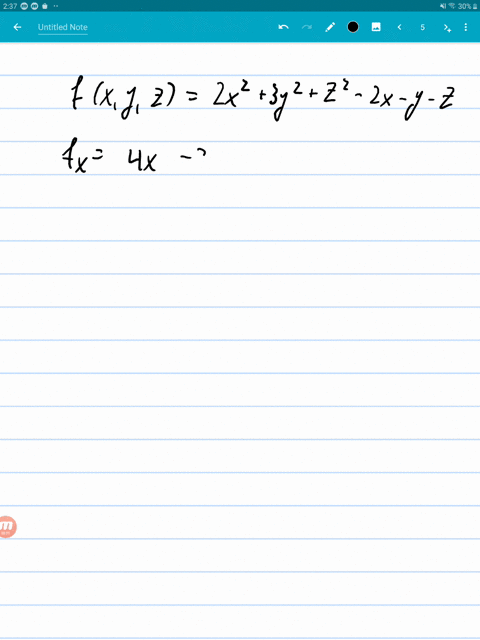 2:37
30%
Untitled Note
5
f(x, y, z) = 2x² + 3y² + z² - 2x - y - z
fx = 4x -
m